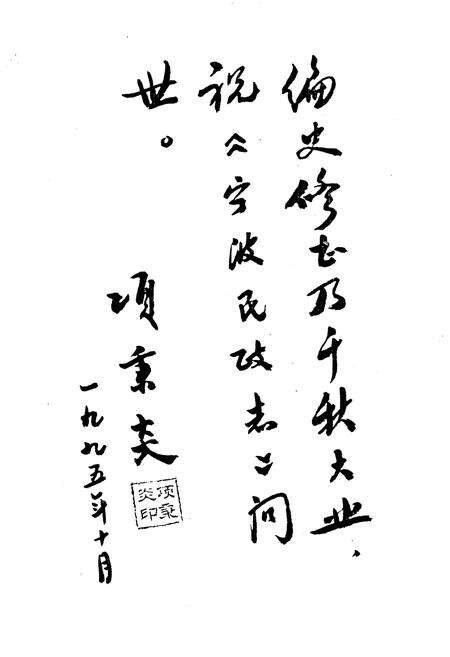 编史修志乃千秋大业，
祝《宁波民政志》问
世。
项秉炎
一九九五年十月
项秉
炎印